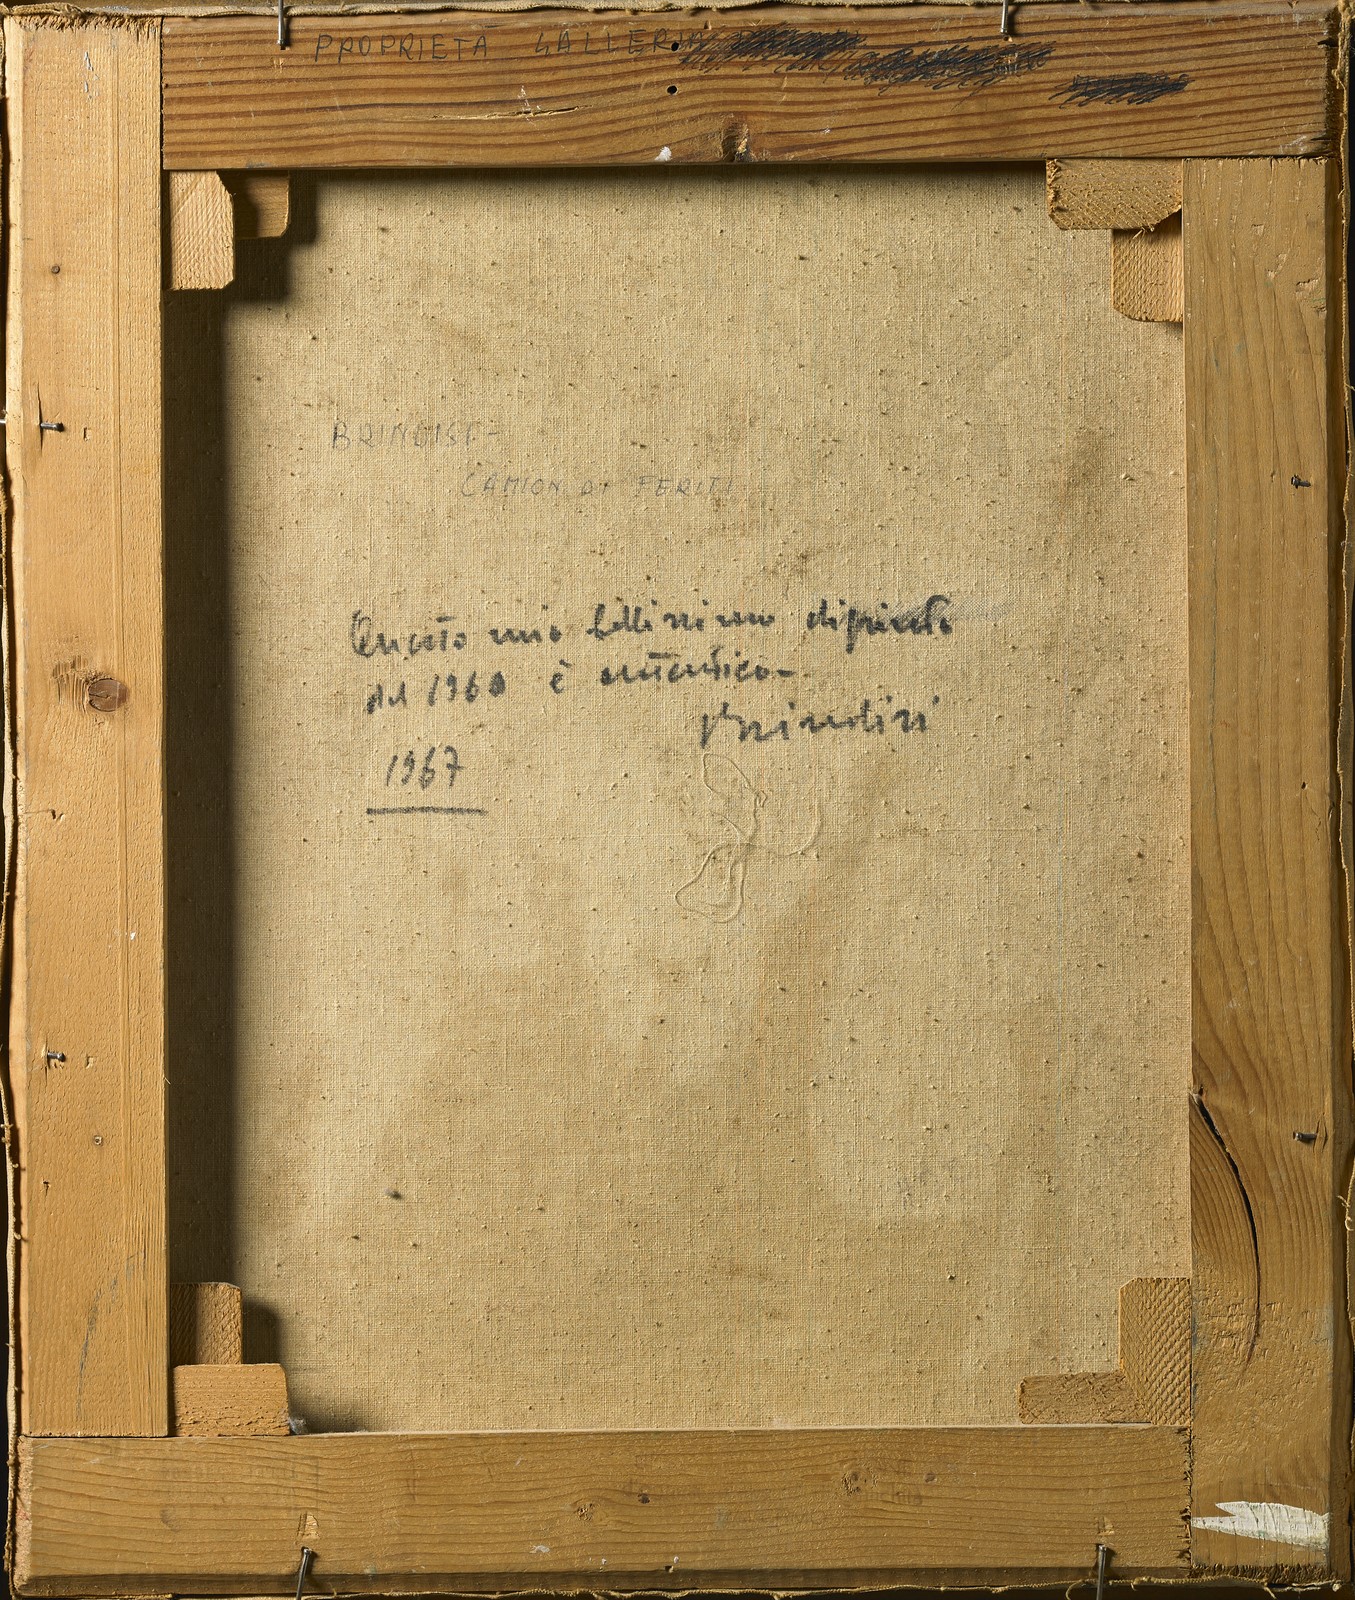 PROPRIETÀ GALLERIA
BRINDISI-
CAMION DI FERITI
Questo mio bellissimo dipinto
del 1960 è autentico-
Brindisi
1967